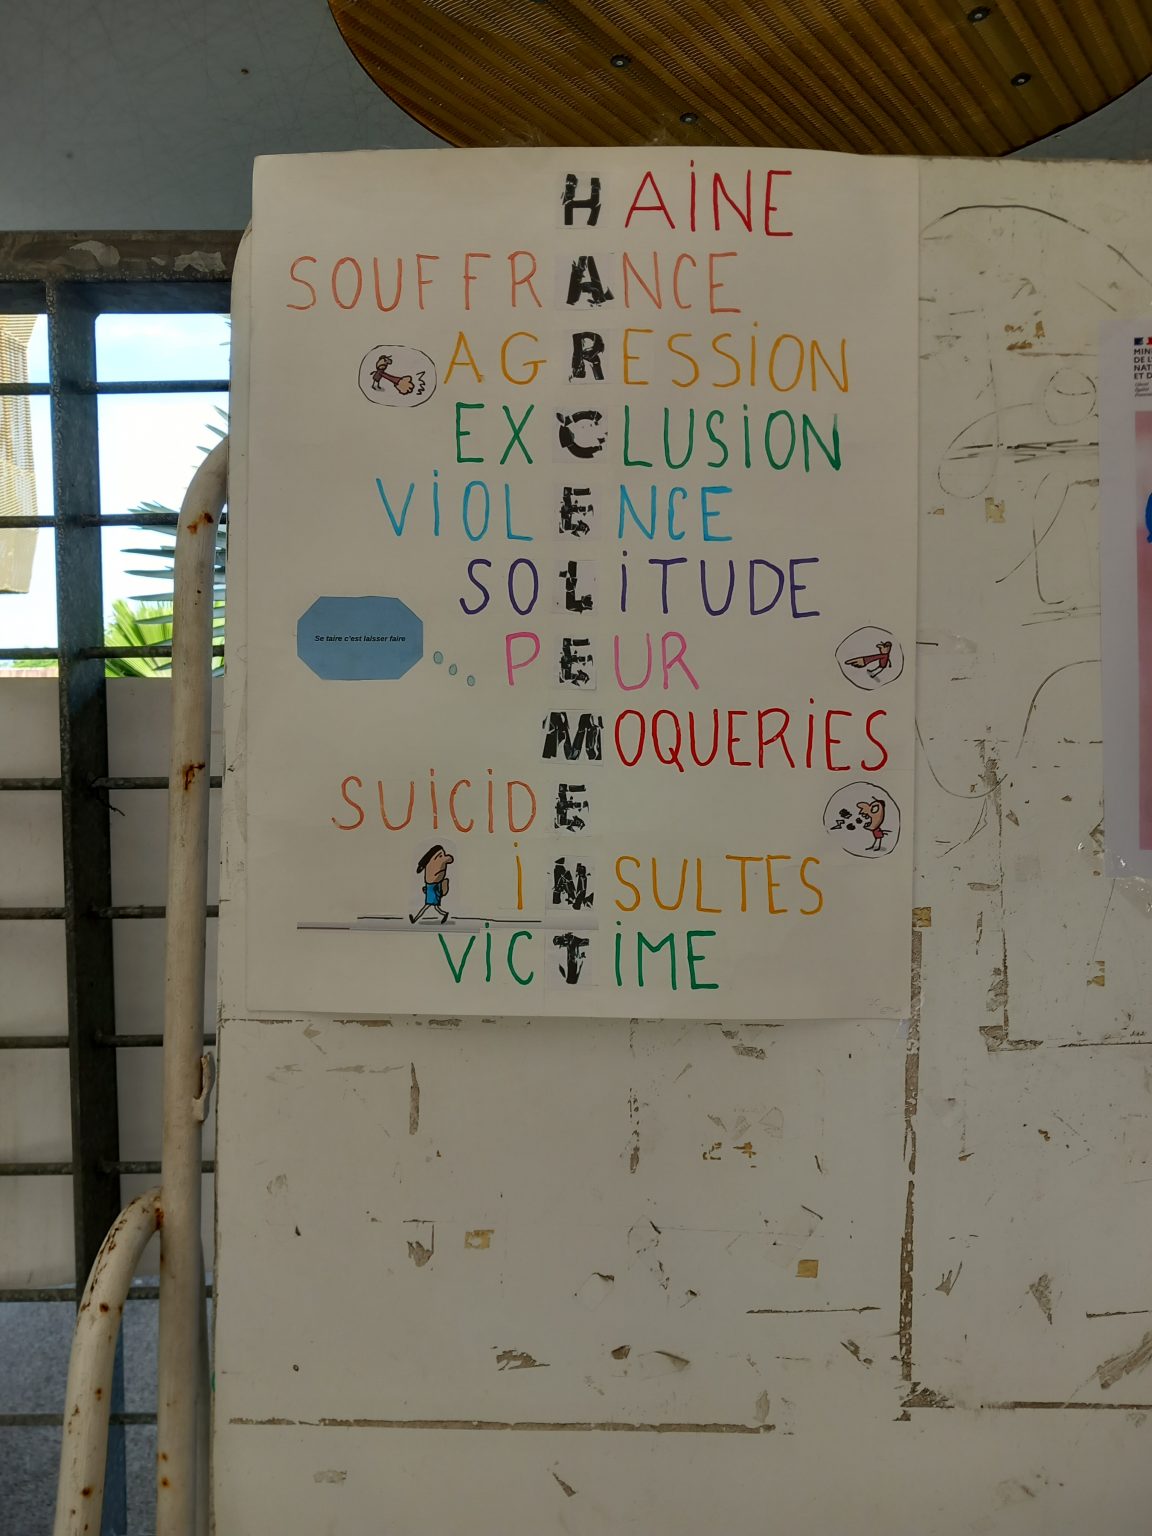 HAiNE
SOUFFRANCE
AGRESSiON
EXCLUSiON
ViOLENCE
SOLiTUDE
Se taire c'est laisser faire
PEUR
MOQUERiES
SUiCiDE
iNSULTES
ViCTiME
MIN
DE L'
NAT
ET D